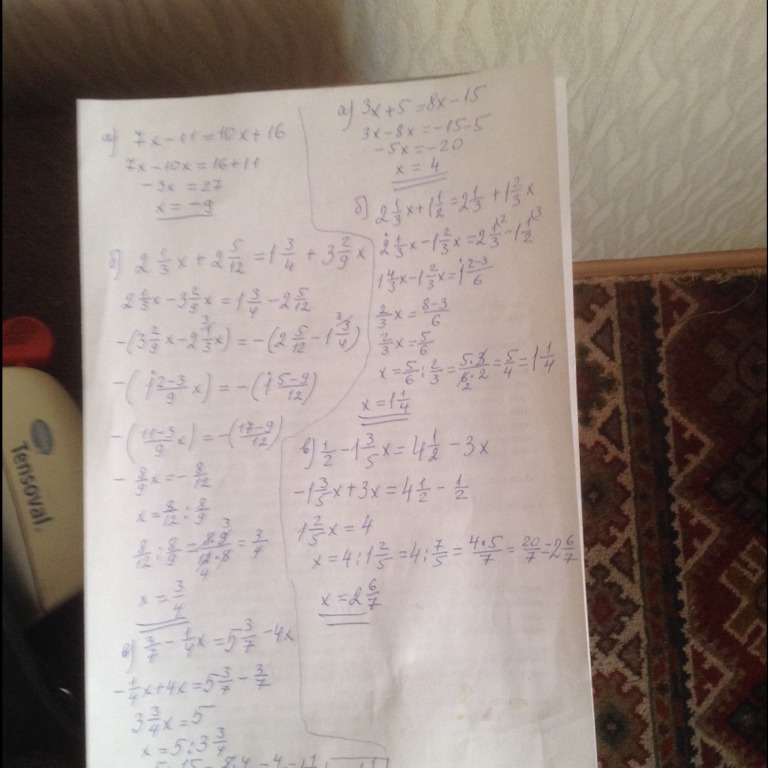 а) 7x-11=10x+16
7x-10x=16+11
-3x=27
x=-9
б) 2 1/3 x + 2 5/12 = 1 3/4 + 3 2/9 x
2 1/3 x - 3 2/9 x = 1 3/4 - 2 5/12
-(3 2/9 x - 2 1/3 x) = -(2 5/12 - 1 3/4)
-(1 2-3/9 x) = -(1 5-9/12)
-(11-3/9 x) = -(17-9/12)
- 8/9 x = - 8/12
x = 8/12 : 8/9
8/12 : 8/9 = 8·9/12·8 = 3/4
x = 3/4
в) 3/7 - 1/4 x = 5 3/7 - 4x
- 1/4 x + 4x = 5 3/7 - 3/7
3 3/4 x = 5
x = 5 : 3 3/4
а) 3x+5=8x-15
3x-8x=-15-5
-5x=-20
x=4
б) 2 1/3 x + 1 1/2 = 2 1/3 + 1 2/3 x
2 1/3 x - 1 2/3 x = 2 1/3 - 1 1/2
1 4/3 x - 1 2/3 x = 1 2-3/6
2/3 x = 8-3/6
2/3 x = 5/6
x = 5/6 : 2/3 = 5·3/6·2 = 5/4 = 1 1/4
x = 1 1/4
в) 1/2 - 1 3/5 x = 4 1/2 - 3x
-1 3/5 x + 3x = 4 1/2 - 1/2
1 2/5 x = 4
x = 4 : 1 2/5 = 4 : 7/5 = 4·5/7 = 20/7 = 2 6/7
x = 2 6/7
Tensoval